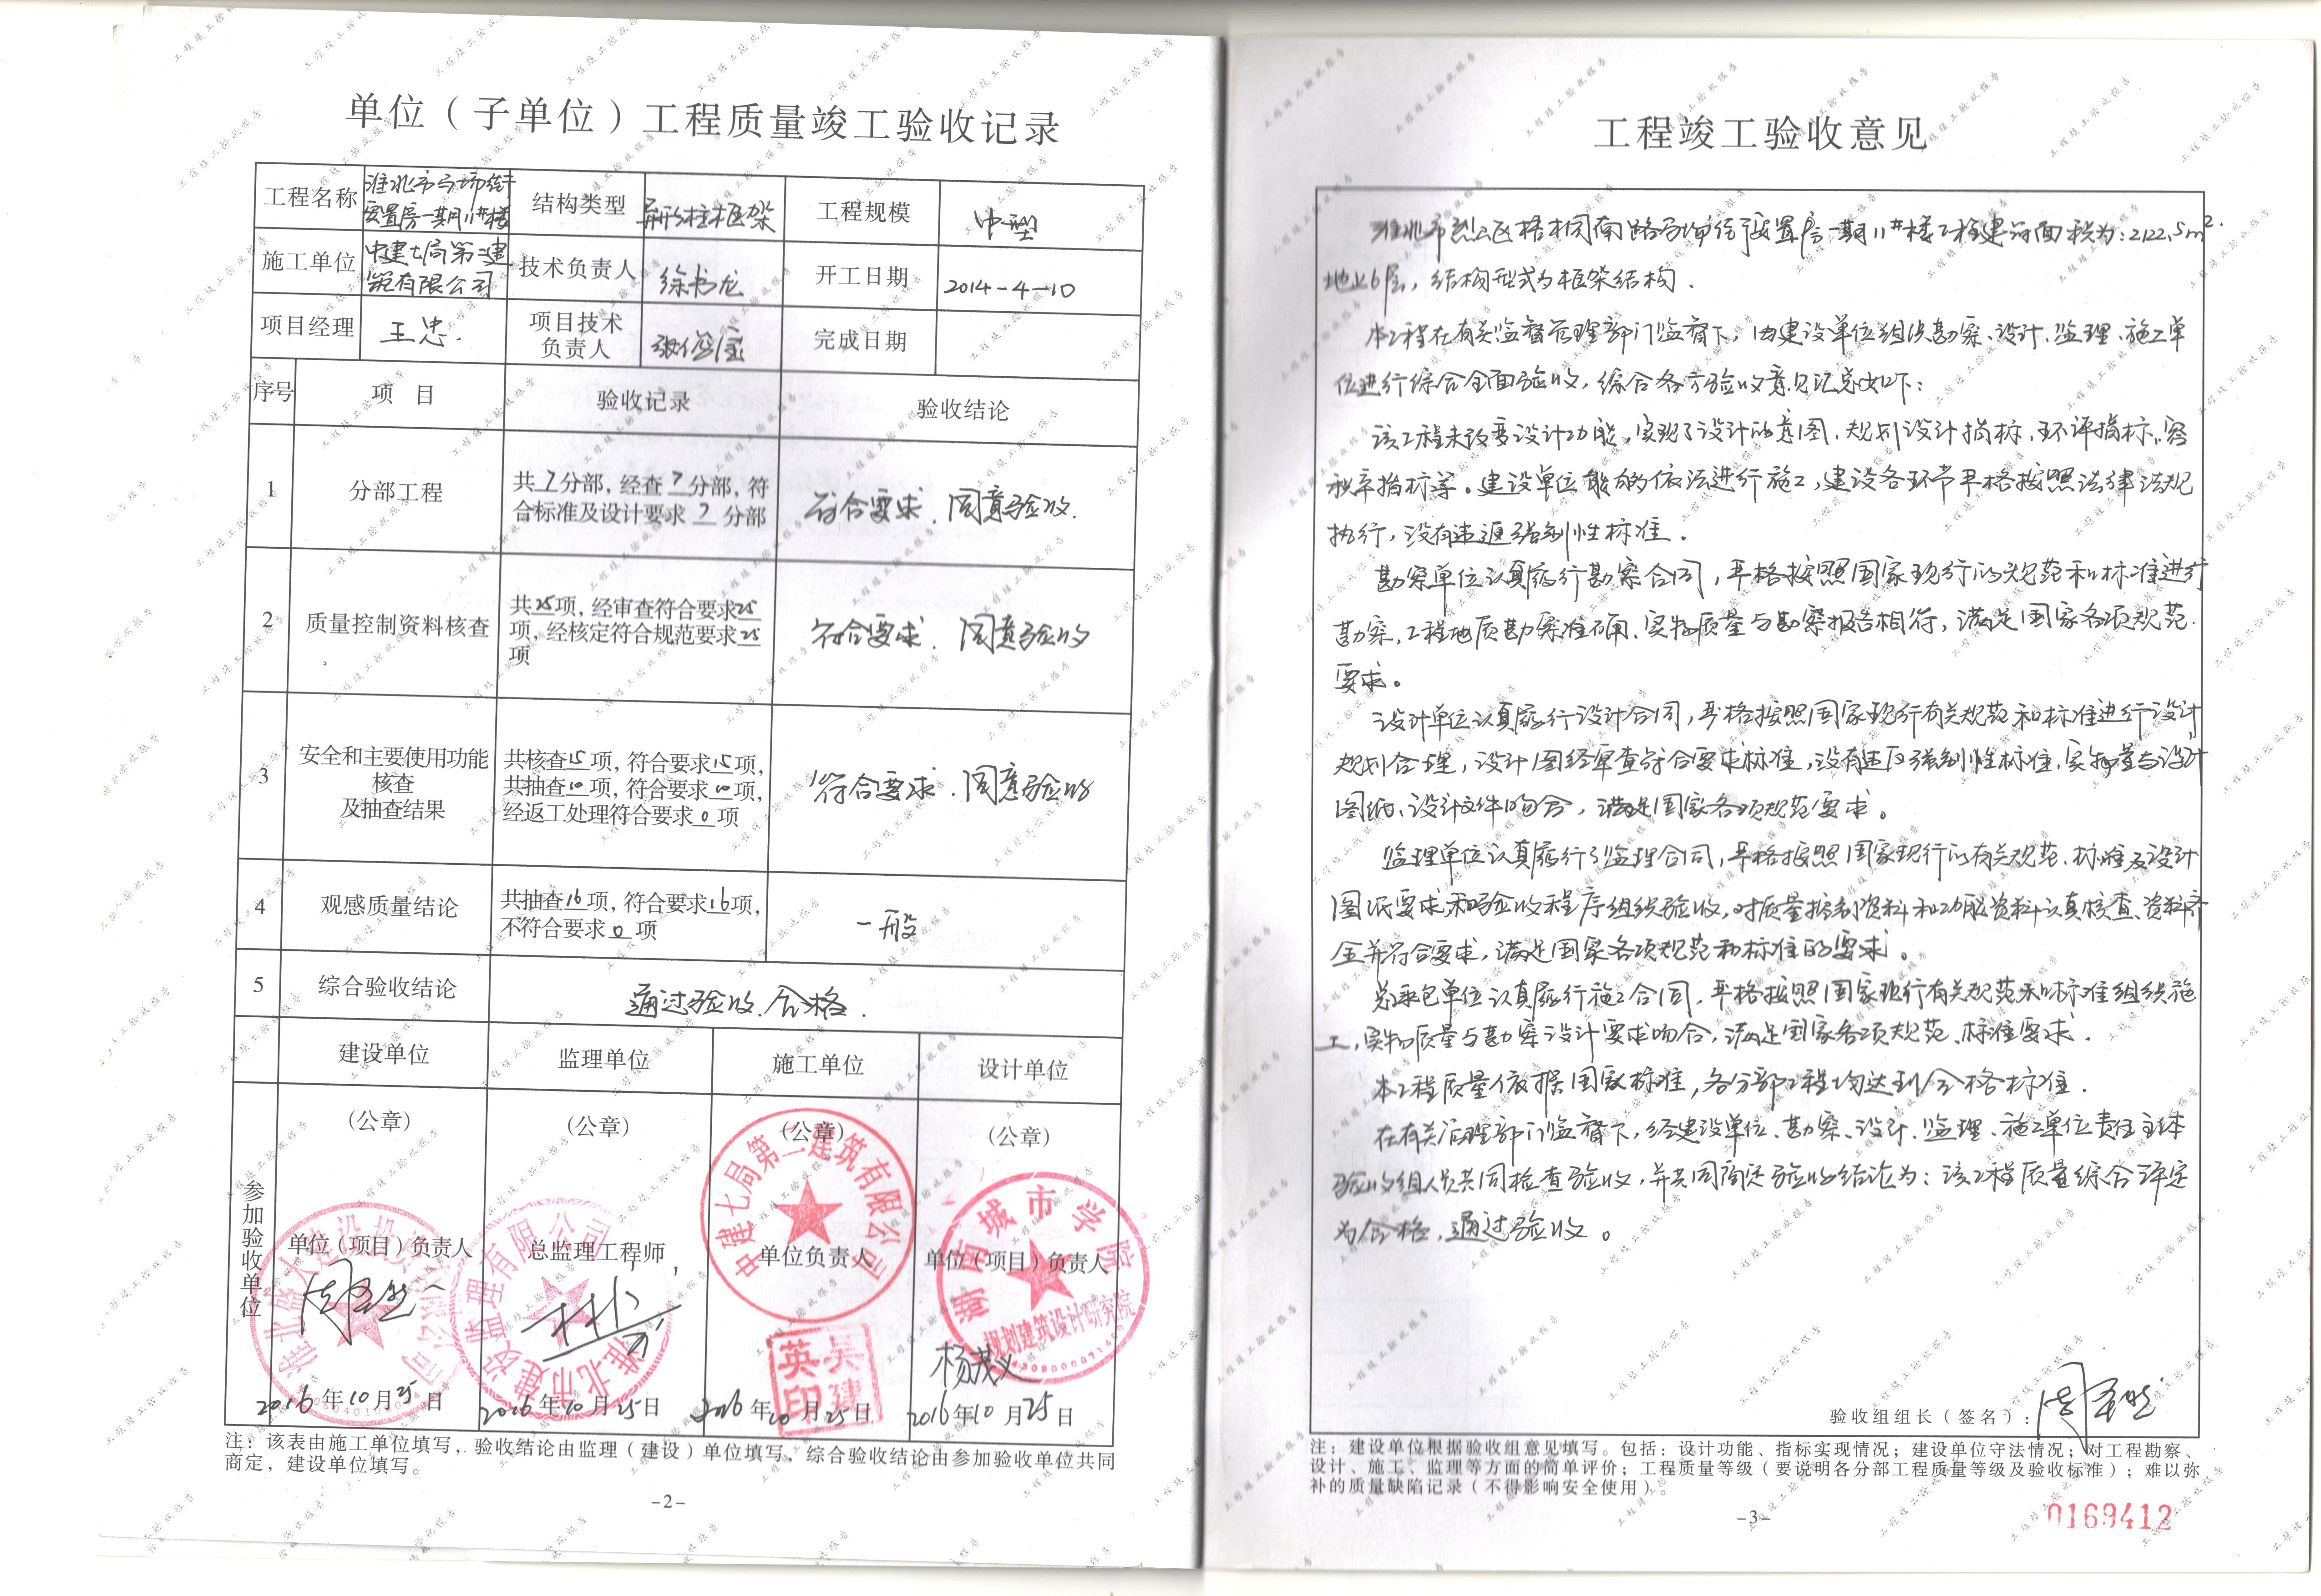 单位（子单位）工程质量竣工验收记录
工程名称 淮北市马场街 结构类型 异形柱框架 工程规模 中型
安置房一期11#楼
施工单位 中建七局第二建 技术负责人 徐书龙 开工日期 2014-4-10
筑有限公司
项目经理 王忠 项目技术 完成日期
负责人
序号 项 目 验收记录 验收结论
1 分部工程 共7分部，经查7分部，符 符合要求．同意验收．
合标准及设计要求 7 分部
2 质量控制资料核查 共25项，经审查符合要求25 符合要求．同意验收
项，经核定符合规范要求25
项
3 安全和主要使用功能 共核查15项，符合要求15项， 符合要求．同意验收
核查 共抽查10项，符合要求10项，
及抽查结果 经返工处理符合要求0项
4 观感质量结论 共抽查16项，符合要求16项， 一般
不符合要求0项
5 综合验收结论 通过验收．合格．
建设单位 监理单位 施工单位 设计单位
参加验收单位
（公章） （公章） （公章） （公章）
中建七局第二建筑有限公司
城市学院
规划建筑设计研究院
监理有限公司
淮北市建设
单位（项目）负责人 总监理工程师 单位负责人 单位（项目）负责人
吴建英印
杨茂义
2016年10月25日 2016年10月25日 2016年10月25日 2016年10月25日
注：该表由施工单位填写，验收结论由监理（建设）单位填写，综合验收结论由参加验收单位共同
商定，建设单位填写。
-2-
工程竣工验收意见
淮北市烈山区梧桐南路马场街安置房一期11#楼工程建筑面积为：2122.5m²．
地上6层，结构型式为框架结构．
本工程在有关监督管理部门监督下，由建设单位组织勘察、设计、监理、施工单
位进行综合全面验收，综合各方验收意见汇总如下：
该工程未改变设计功能，实现了设计的意图．规划设计指标，环评指标，容
积率指标等。建设单位能够依法进行施工，建设各环节严格按照法律法规
执行，没有违返强制性标准．
勘察单位认真履行勘察合同，严格按照国家现行的规范和标准进行
勘察，工程地质勘察准确，实物质量与勘察报告相符，满足国家各项规范
要求。
设计单位认真履行设计合同，严格按照国家现行有关规范和标准进行设计
规划合理，设计图经审查符合要求标准，没有违反强制性标准，实物量与设计
图纸、设计文件吻合，满足国家各项规范要求。
监理单位认真履行了监理合同，严格按照国家现行的有关规范、标准及设计
图纸要求和验收程序组织验收，对质量控制资料和功能资料认真核查，资料齐
全并符合要求，满足国家各项规范和标准的要求。
总承包单位认真履行施工合同，严格按照国家现行有关规范和标准组织施
工，实物质量与勘察设计要求吻合，满足国家各项规范、标准要求．
本工程质量依据国家标准，各分部工程均达到合格标准．
在有关管理部门监督下，经建设单位、勘察、设计、监理、施工单位责任主体
验收组人员共同检查验收，并共同商定验收结论为：该工程质量综合评定
为合格，通过验收。
验收组组长（签名）：
注：建设单位根据验收组意见填写。包括：设计功能、指标实现情况；建设单位守法情况；对工程勘察、
设计、施工、监理等方面的简单评价；工程质量等级（要说明各分部工程质量等级及验收标准）；难以弥
补的质量缺陷记录（不得影响安全使用）。
-3-
0169412